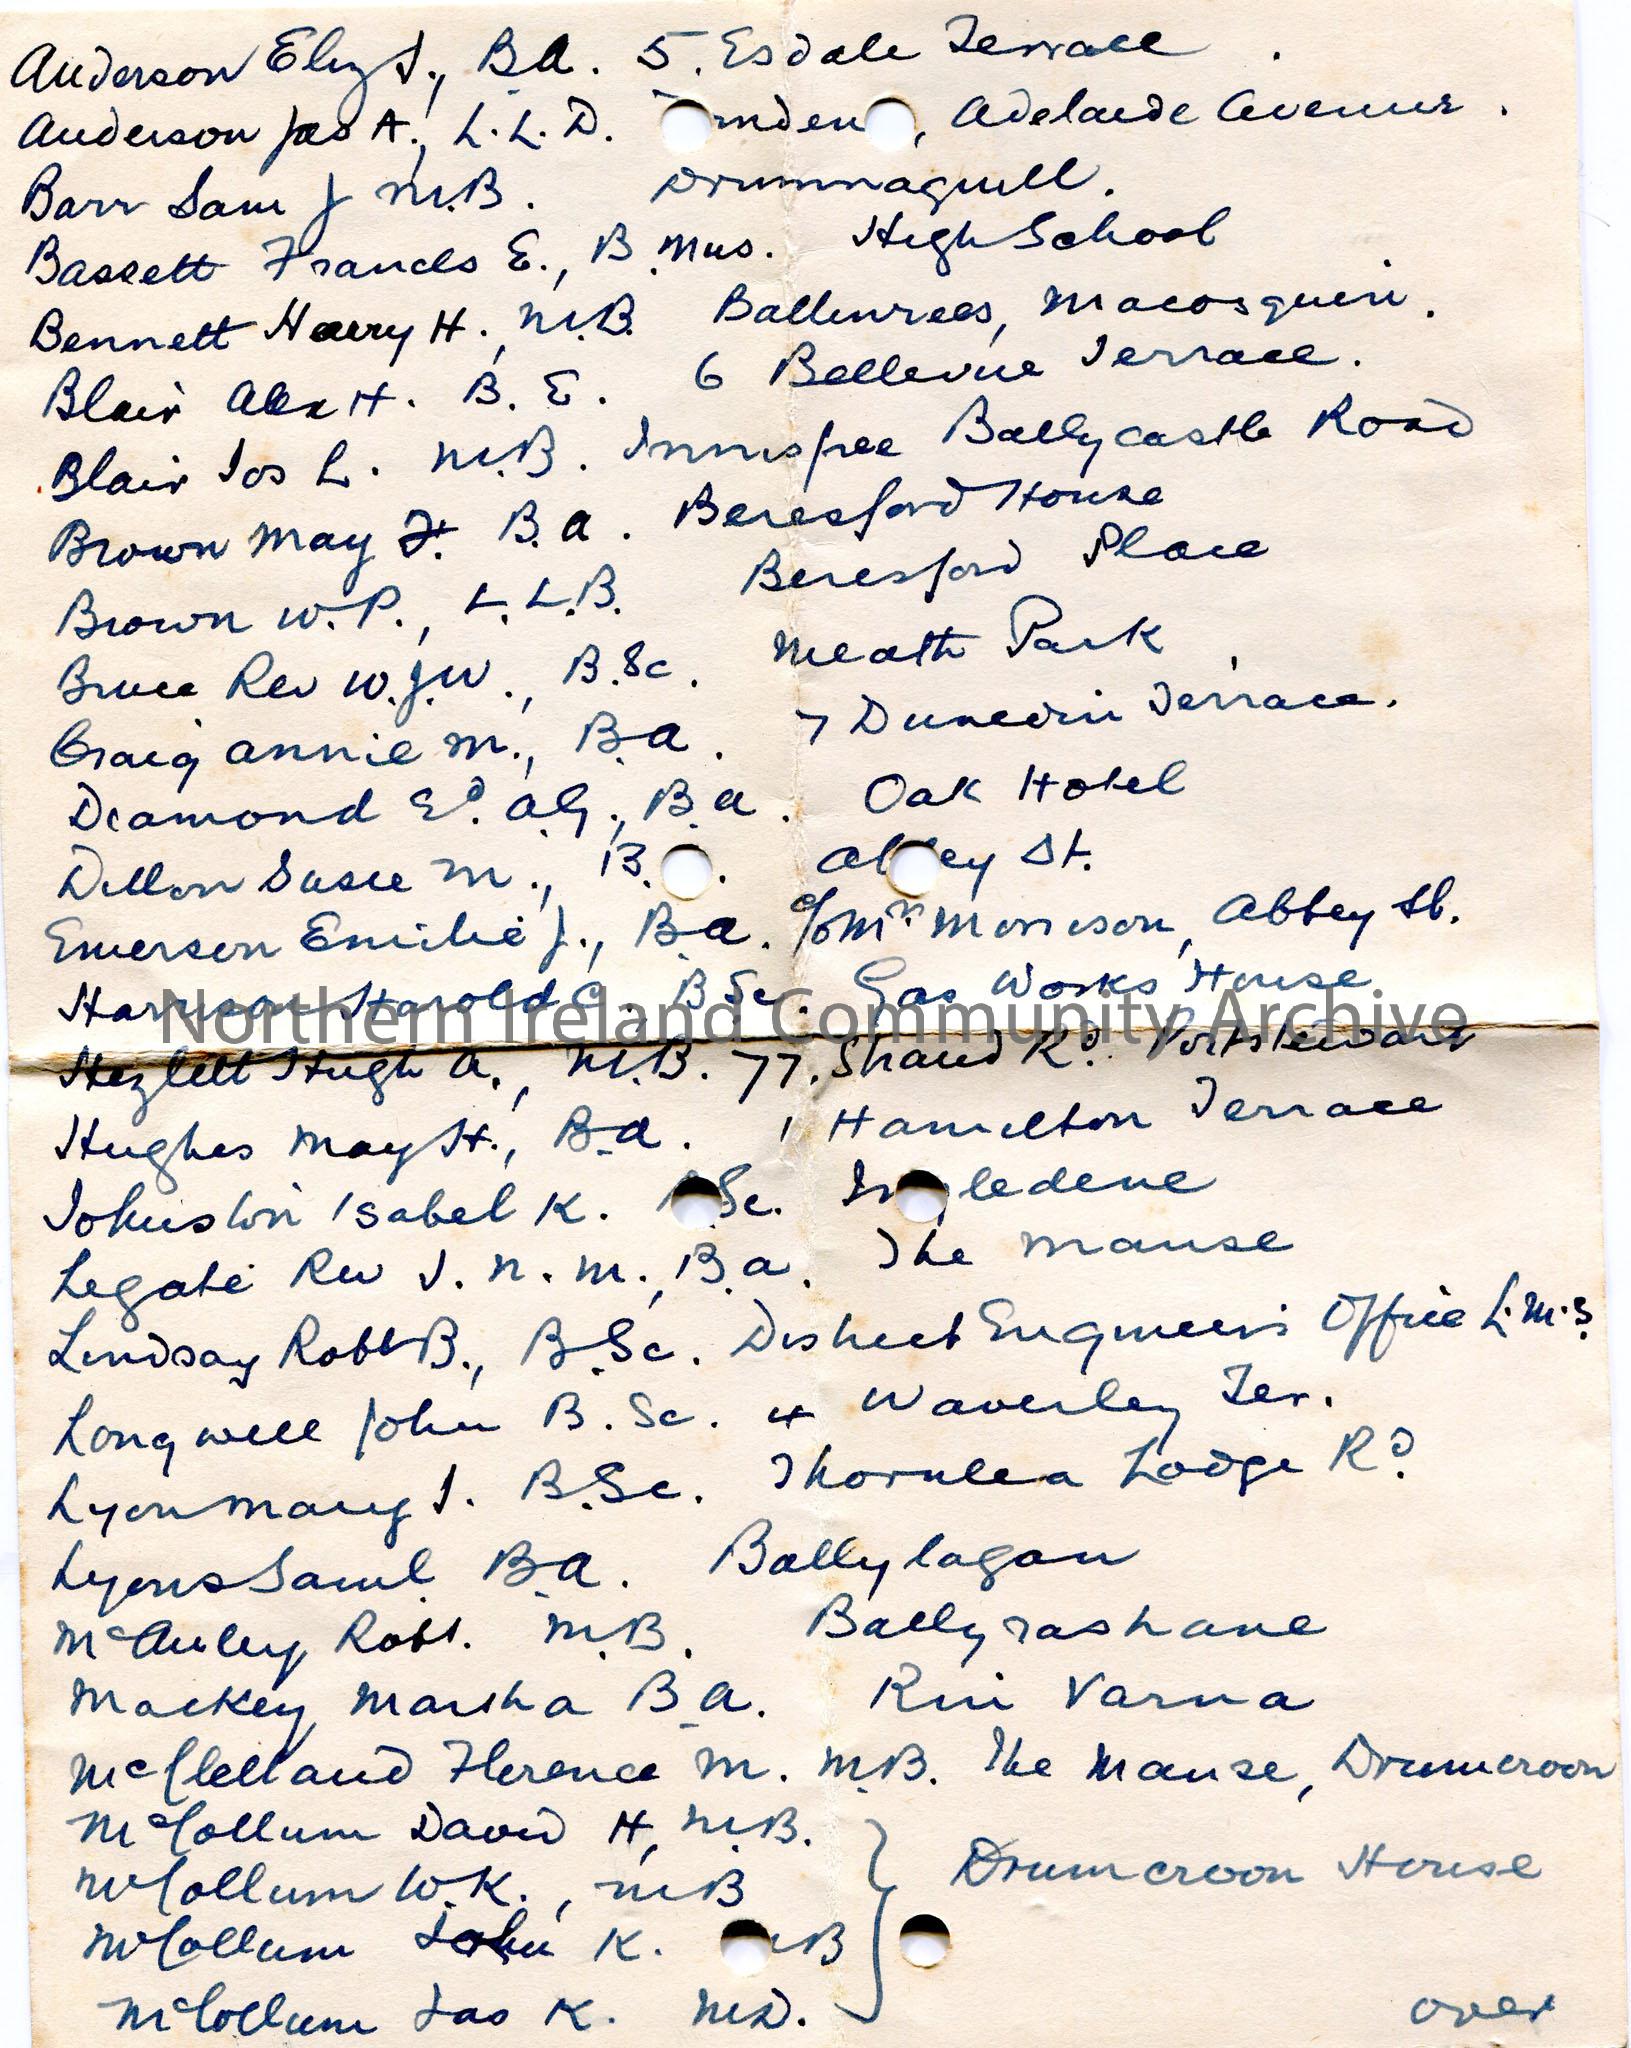 Anderson Eliz J., B.A. 5. Esdale Terrace
Anderson Jas A., L.L.D. mden, Adelaide Avenue.
Barr Sam J M.B. Drumnaquill.
Bassett Francis E., B.Mus. High School
Bennett Harry H., M.B. Ballinrees, Macosquin.
Blair Alex H. B.E. 6 Bellevue Terrace.
Blair Jos L. M.B. Innisfree Ballycastle Road
Brown May H. B.A. Beresford House
Brown W.P., L.L.B. Beresford Place
Bruce Rev W.J.W., B.Sc. Meath Park
Craig Annie M., B.A. 7 Dunedin Terrace.
Diamond Ed. A.G., B.A. Oak Hotel
Dillon Susie M., B. Abbey St.
Emerson Emilie J., B.A. c/o Mrs Morrison, Abbey St.
Harrison Harold C., B.Sc. Gas Works House
Northern Ireland Community Archive
Hezlett Hugh A., M.B. 77. Strand Rd. Portstewart
Hughes May H., B.A. 1 Hamilton Terrace
Johnston Isabel K. Sc. Ingledene
Legate Rev J.N.M., B.A. The Manse
Lindsay Robt B., B.Sc. District Engineers Office L.M.S.
Longwell John B.Sc. 4 Waverley Ter.
Lyon Mary J. B.Sc. Thornlea Lodge Rd.
Lyons Saml. B.A. Ballylagan
McAuley Robt. M.B. Ballyrashane
Mackey Martha B.A. Rin Varna
McClelland Florence M. M.B. The Manse, Drumcroon
McCollum David H, M.B.
McCollum W.K., M.B Drumcroon House
McCollum John K. MB
McCollum Jas K. M.D.
over